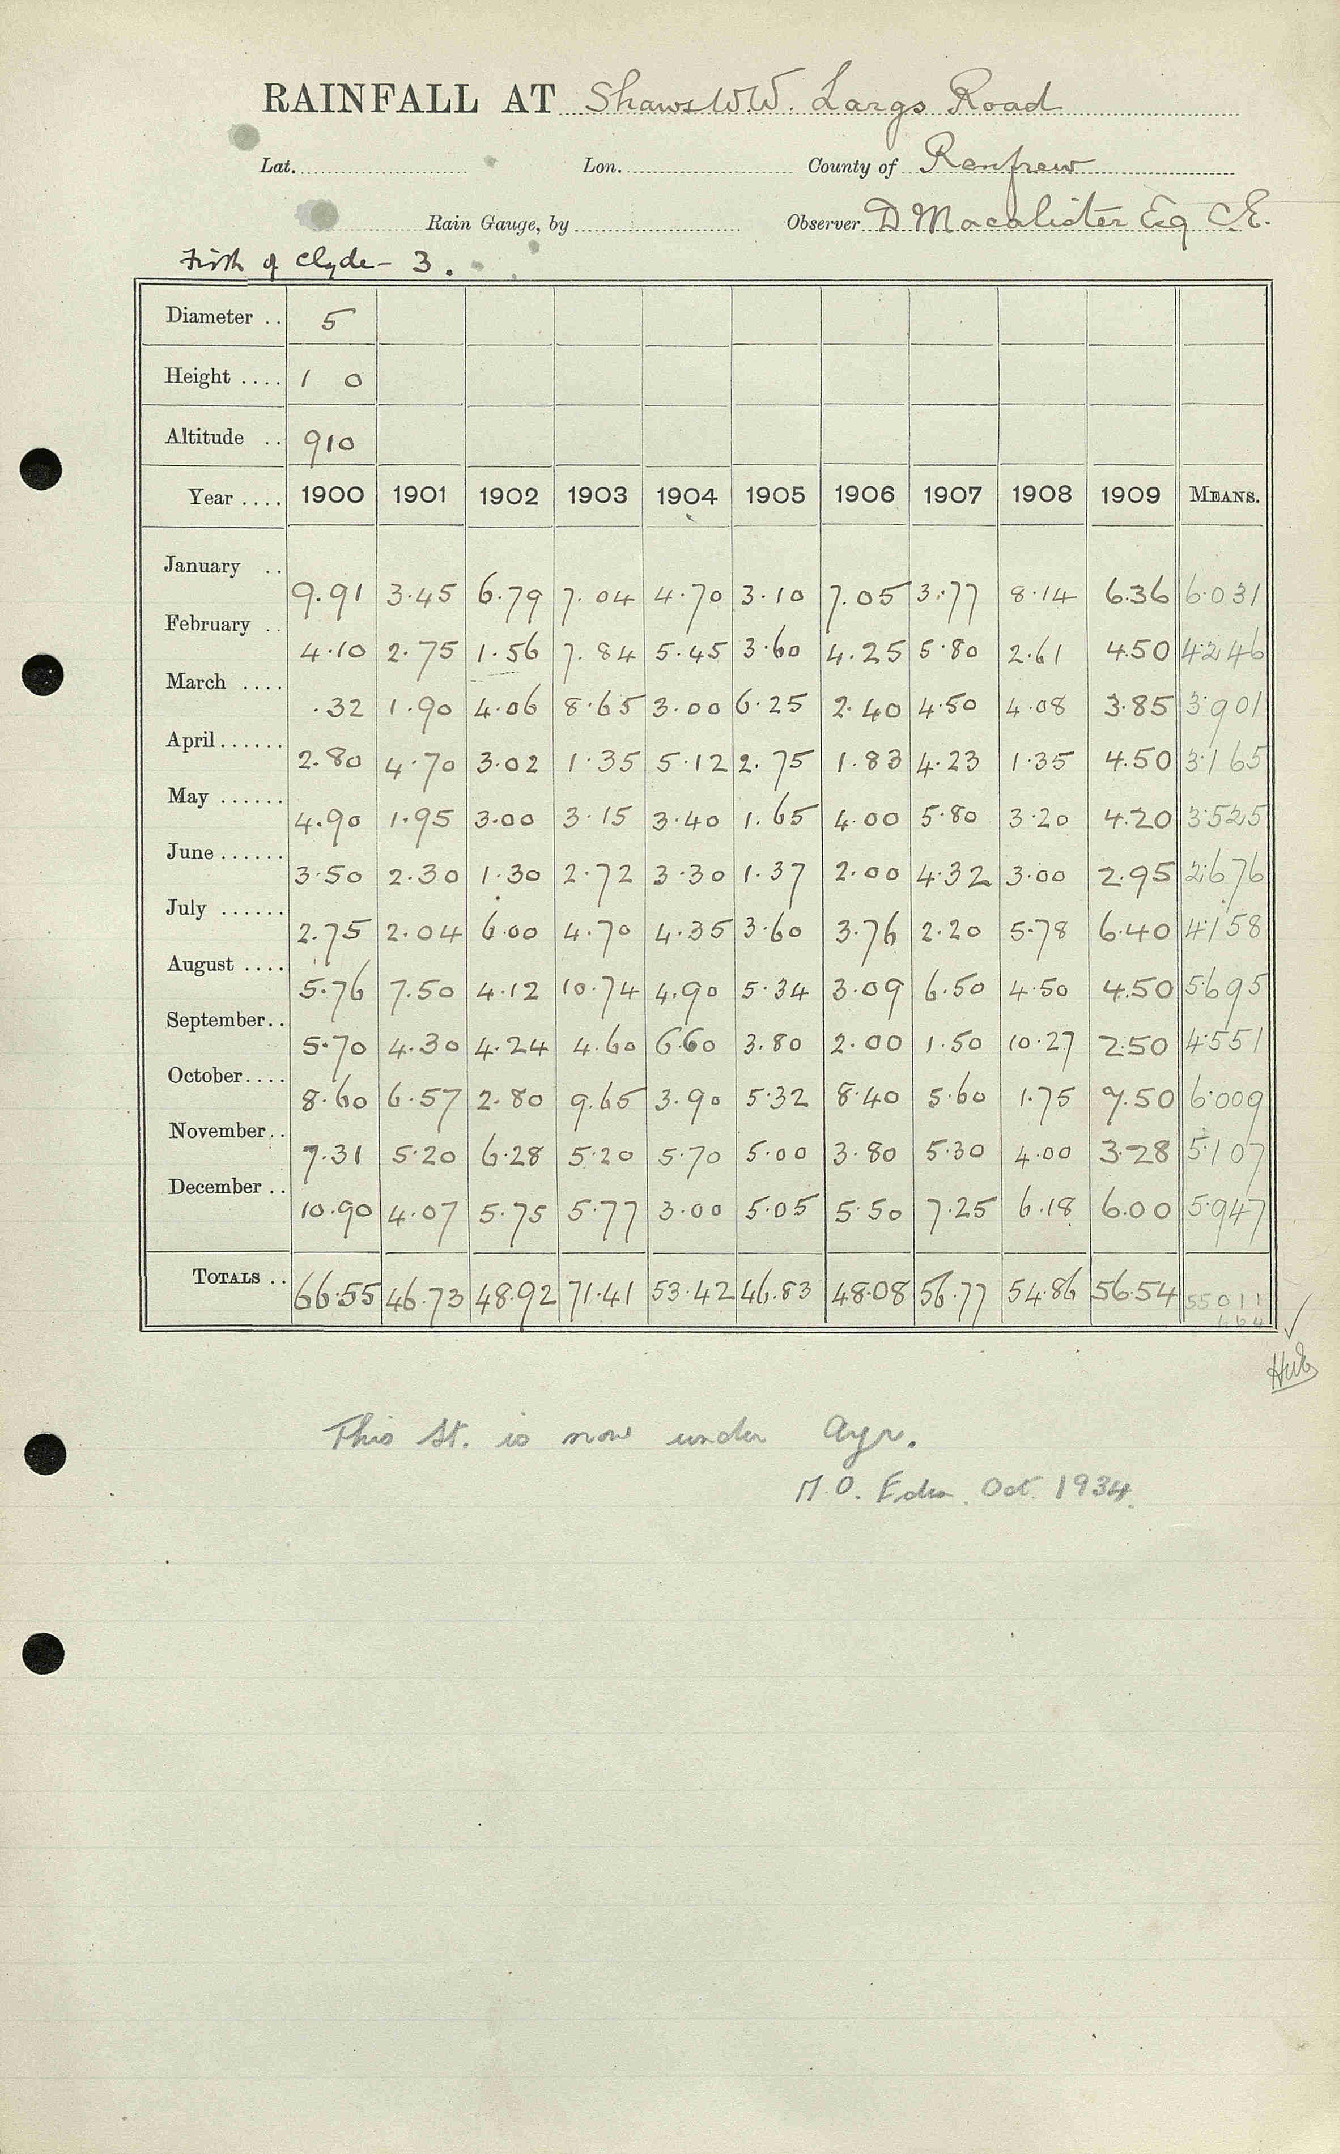 RAINFALL AT Shaws W.W. Largs Road
Lat. Lon. County of Renfrew
Rain Gauge, by Observer D Macalister Esq C.E.
Firth of Clyde - 3.
Diameter .. 5
Height .... 1 0
Altitude .. 910
Year .... 1900 1901 1902 1903 1904 1905 1906 1907 1908 1909 MEANS.
January .. 9.91 3.45 6.79 7.04 4.70 3.10 7.05 3.77 8.14 6.36 6.031
February .. 4.10 2.75 1.56 7.84 5.45 3.60 4.25 5.80 2.61 4.50 4.246
March .... .32 1.90 4.06 8.65 3.00 6.25 2.40 4.50 4.08 3.85 3.901
April...... 2.80 4.70 3.02 1.35 5.12 2.75 1.83 4.23 1.35 4.50 3.165
May ...... 4.90 1.95 3.00 3.15 3.40 1.65 4.00 5.80 3.20 4.20 3.525
June...... 3.50 2.30 1.30 2.72 3.30 1.37 2.00 4.32 3.00 2.95 2.676
July ...... 2.75 2.04 6.00 4.70 4.35 3.60 3.76 2.20 5.78 6.40 4.158
August .... 5.76 7.50 4.12 10.74 4.90 5.34 3.09 6.50 4.50 4.50 5.695
September.. 5.70 4.30 4.24 4.60 6.60 3.80 2.00 1.50 10.27 2.50 4.551
October.... 8.60 6.57 2.80 9.65 3.90 5.32 8.40 5.60 1.75 7.50 6.009
November.. 7.31 5.20 6.28 5.20 5.70 5.00 3.80 5.30 4.00 3.28 5.107
December .. 10.90 4.07 5.75 5.77 3.00 5.05 5.50 7.25 6.18 6.00 5.947
TOTALS .. 66.55 46.73 48.92 71.41 53.42 46.83 48.08 56.77 54.86 56.54 55011
This St. is now under Ayr.
M.O. Edin. Oct. 1934.